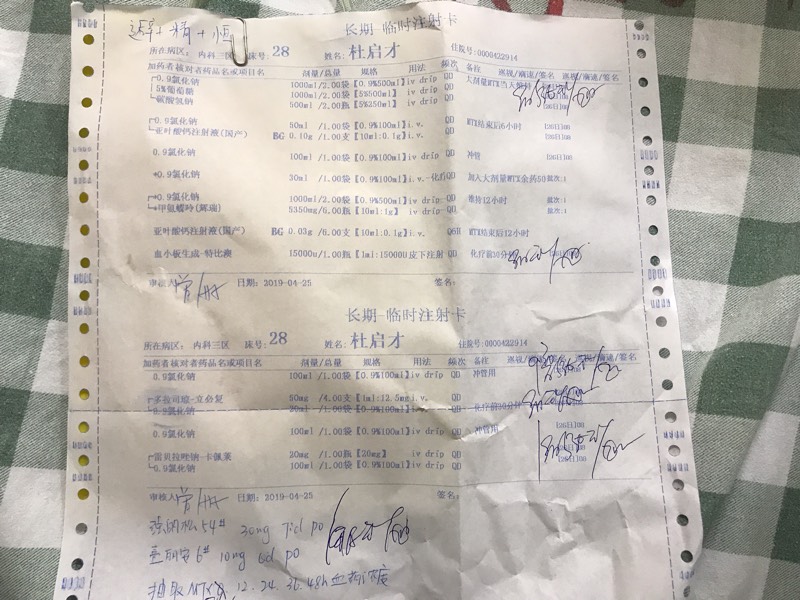 长期-临时注射卡
所在病区: 内科三区 床号: 28 姓名: 杜启才 住院号:0000422914
加药者核对者药品名或项目名 剂量/总量 规格 用法 频次 备注 巡视/滴速/签名 巡视/滴速/签名
0.9氯化钠 1000ml/2.00袋【0.9%500ml】iv drip QD 大剂量MTX当天
5%葡萄糖 1000ml/2.00袋【5%500ml】
碳酸氢钠 500ml/2.00瓶【5%250ml】
0.9氯化钠 50ml /1.00袋【0.9%100ml】i.v. QD MTX结束后6小时
亚叶酸钙注射液(国产) BG 0.10g/1.00支【10ml:0.1g】
0.9氯化钠 100ml/1.00袋【0.9%100ml】iv drip QD 冲管
*0.9氯化钠 30ml /1.00袋【0.9%100ml】i.v.-化疗 QD 加入大剂量MTX余药50 批次:1
*0.9氯化钠 1000ml/2.00袋【0.9%500ml】iv drip QD 维持12小时 批次:1
*甲氨蝶呤(辉瑞) 8350mg/6.00瓶【10ml:1g】 iv drip QD 批次:1
亚叶酸钙注射液(国产) BG 0.03g/6.00支【10ml:0.1g】i.v. Q6H MTX结束后12小时
血小板生成-特比澳 15000u/1.00瓶【1ml:15000U】皮下注射 QD 化疗前30分
审核人: 日期: 2019-04-25 签名:
长期-临时注射卡
所在病区: 内科三区 床号: 28 姓名: 杜启才 住院号:0000422914
加药者核对者药品名或项目名 剂量/总量 规格 用法 频次 备注 巡视/滴速/签名 巡视/滴速/签名
0.9氯化钠 100ml/1.00袋【0.9%100ml】iv drip QD 冲管用
多拉司琼-立必复 50mg /4.00支【1ml:12.5mg】i.v. QD 化疗前30分钟
0.9氯化钠 20ml /1.00袋【0.9%100ml】 QD
0.9氯化钠 100ml/1.00袋【0.9%100ml】iv drip QD 冲管用
雷贝拉唑钠-卡佩莱 20mg /1.00瓶【20mg】 iv drip QD
0.9氯化钠 100ml/1.00袋【0.9%100ml】iv drip QD
审核人: 日期: 2019-04-25 签名:
30mg Tid po
6# 10mg qd po
抽取MTX 12.24.36.48h血药浓度